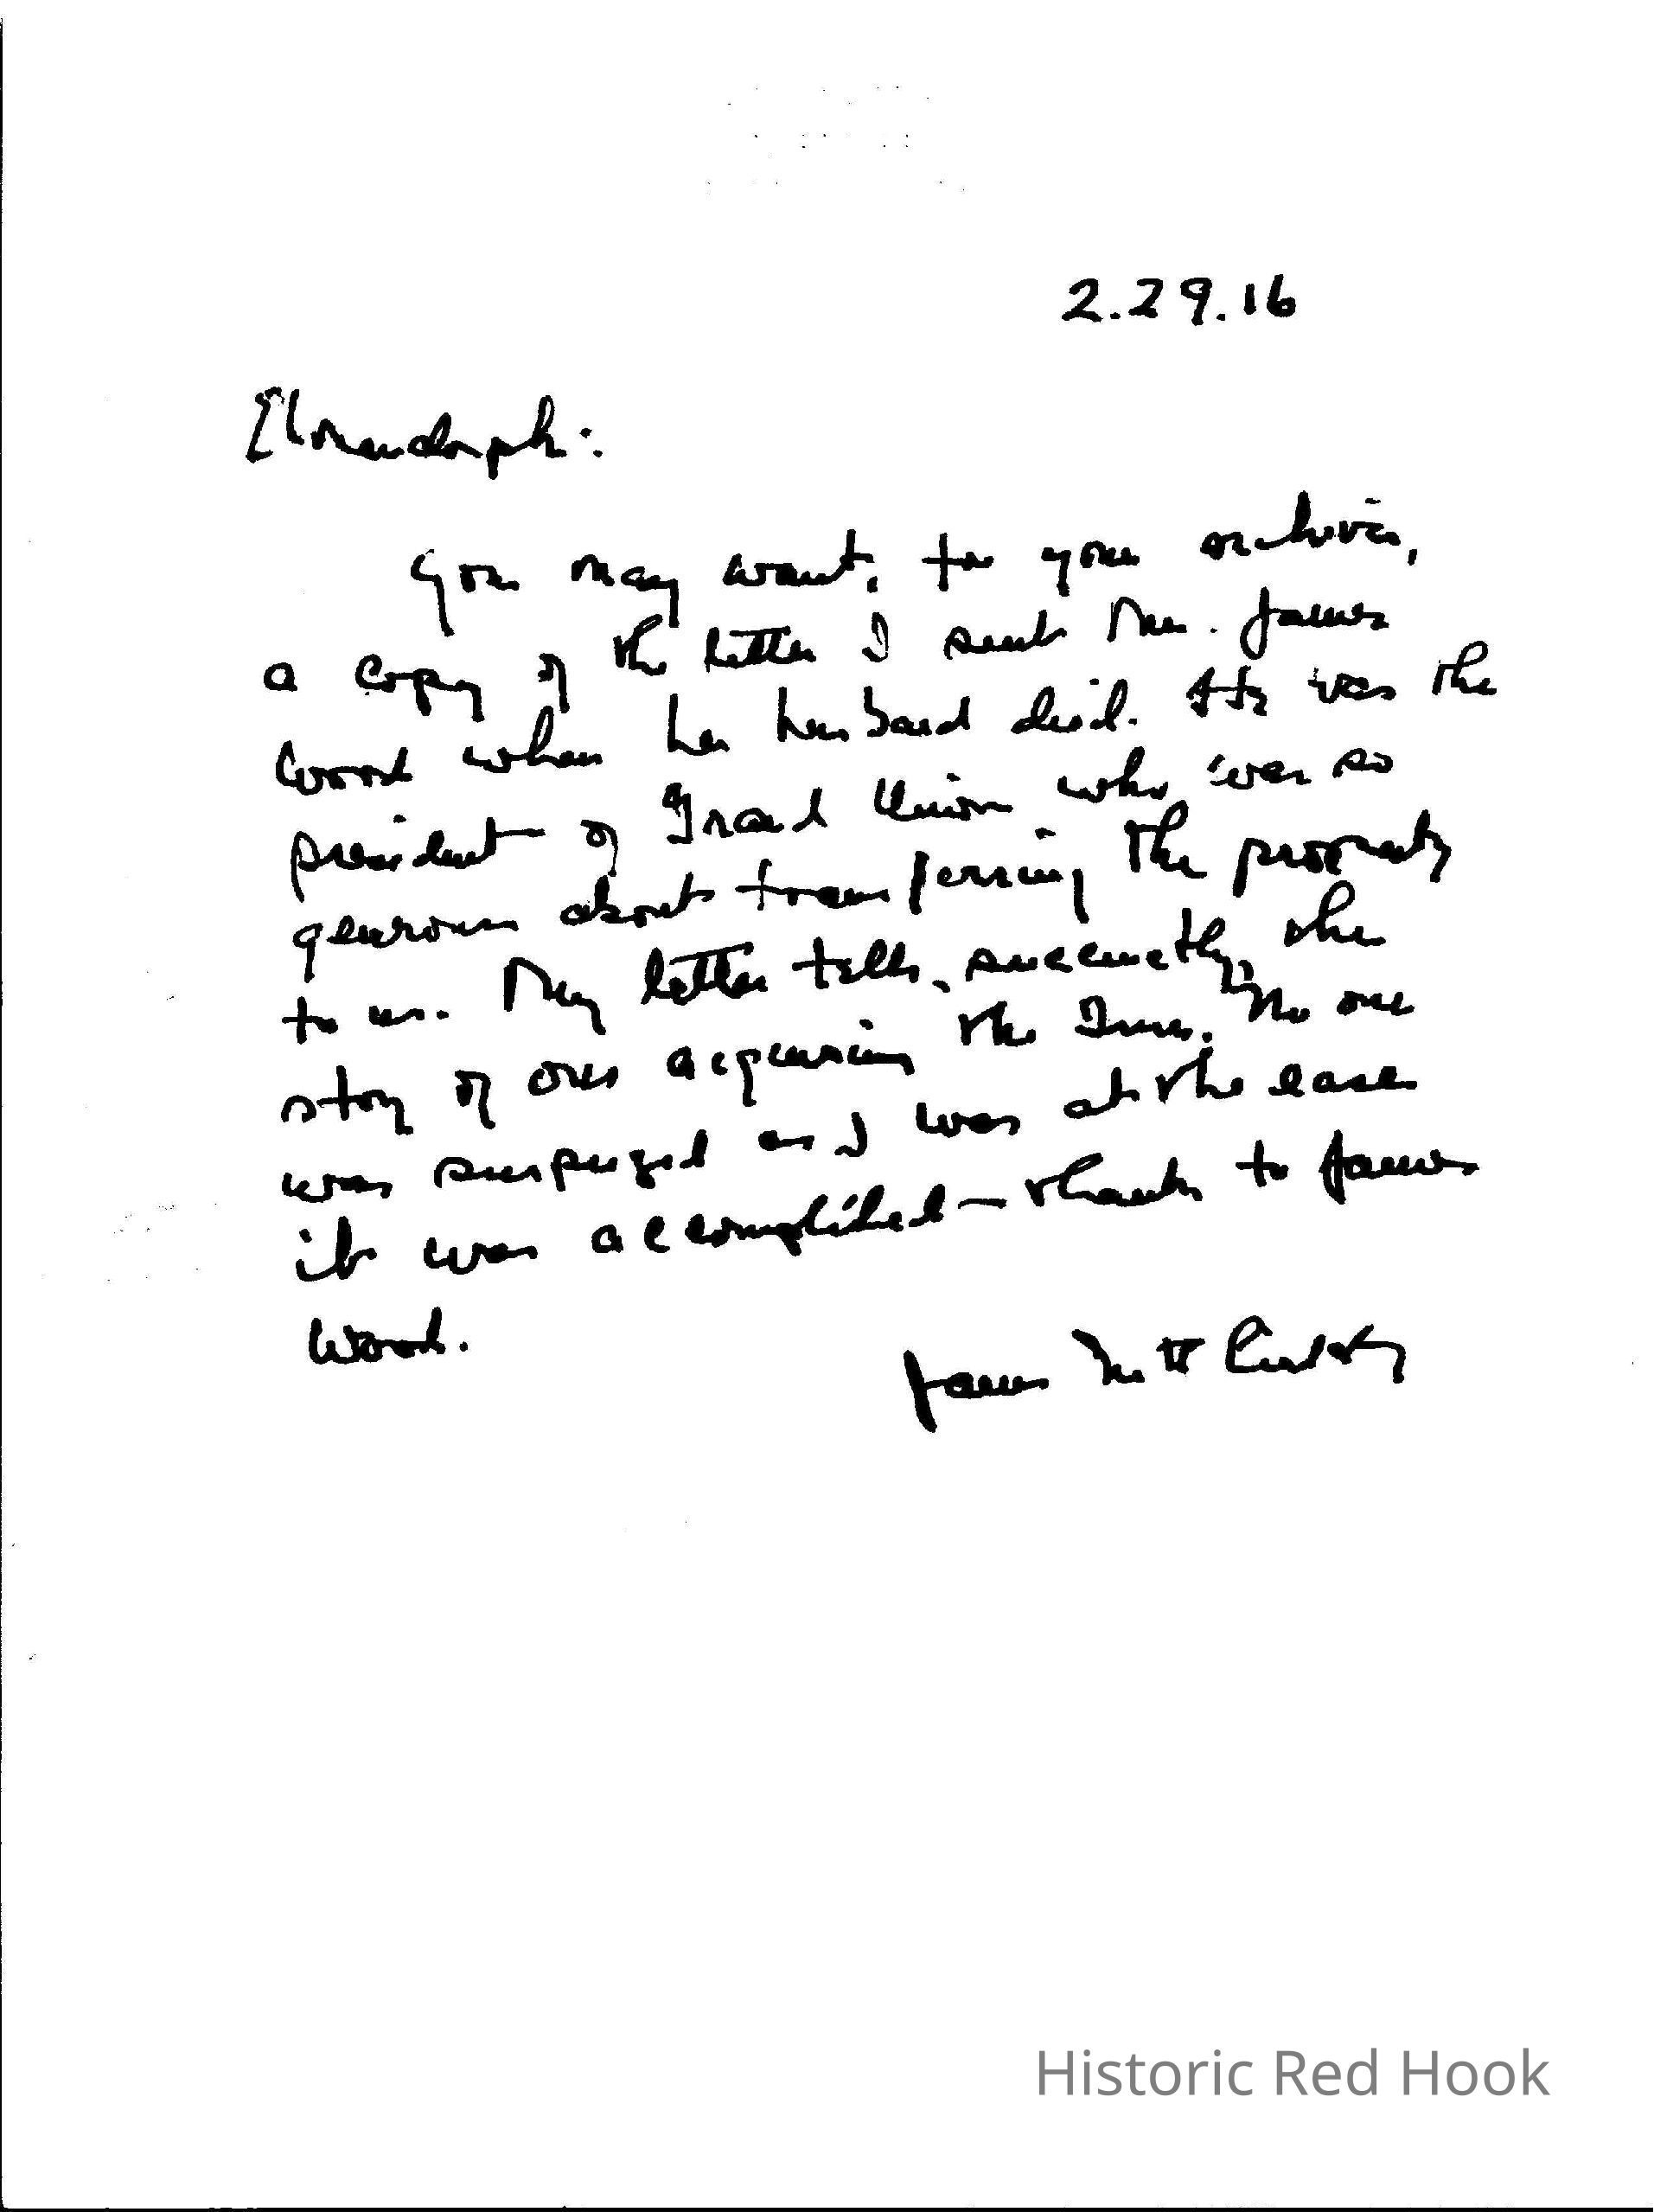 2.29.16
Elmendorph:
You may want, for your archives,
a copy of the letter I sent Mrs. James
Wood when her husband died. He was the
president of Grand Union who was so
generous about transferring the property
to us. My letter tells, succinctly, the
story of our acquiring the Inn. No one
was surprized as I was at the ease
it was accomplished — thanks to James
Wood.
James
Historic Red Hook